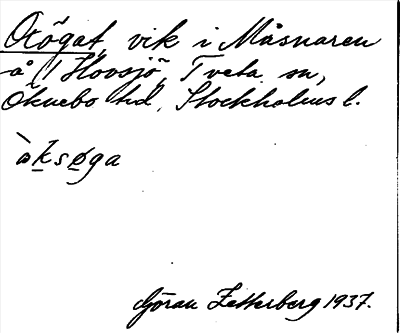 Oxögat, vik i Måsnaren
å 1 Hovsjö, Tveta sn,
Öknebo hd, Stockholms l.
àksøga
Göran Zetterberg 1937.